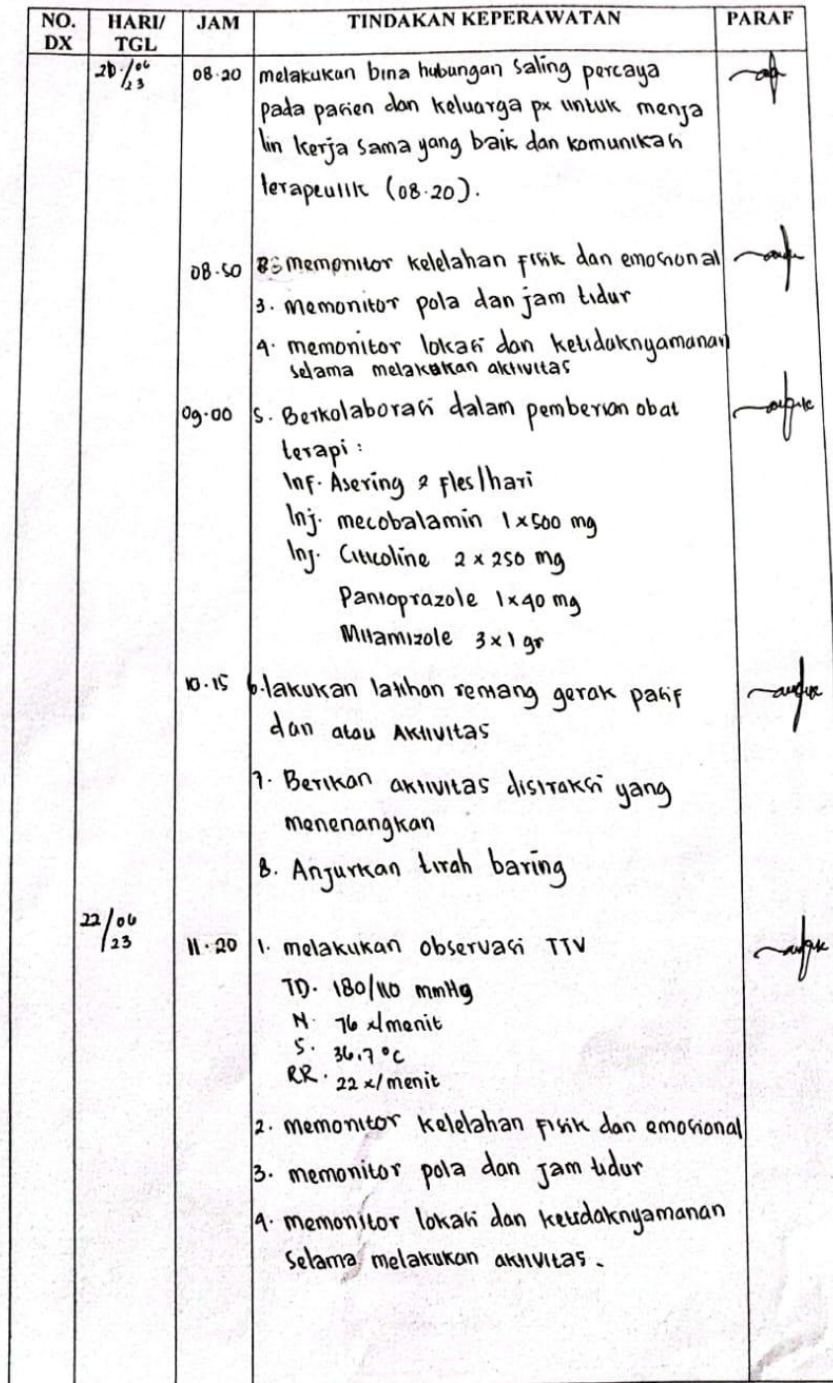 NO. DX HARI/ TGL JAM TINDAKAN KEPERAWATAN PARAF
20/06/23 08.20 melakukan bina hubungan saling percaya
pada pasien dan keluarga px untuk menja
lin kerja sama yang baik dan komunikasi
terapeutik (08.20).
08.50 memonitor kelelahan fisik dan emosional
3. memonitor pola dan jam tidur
4. memonitor lokasi dan ketidaknyamanan
selama melakukan aktivitas
09.00 5. Berkolaborasi dalam pemberian obat
terapi :
Inf. Asering 2 fles/hari
Inj. mecobalamin 1x500 mg
Inj. Citicoline 2 x 250 mg
Pantoprazole 1x40 mg
Mitamizole 3x1 gr
10.15 6. lakukan latihan rentang gerak pasif
dan atau Aktivitas
7. Berikan aktivitas distraksi yang
menenangkan
8. Anjurkan tirah baring
22/06/23 11.20 1. melakukan observasi TTV
TD. 180/110 mmHg
N. 76 x/menit
S. 36,7 °C
RR. 22 x/menit
2. memonitor kelelahan fisik dan emosional
3. memonitor pola dan jam tidur
4. memonitor lokasi dan ketidaknyamanan
selama melakukan aktivitas.